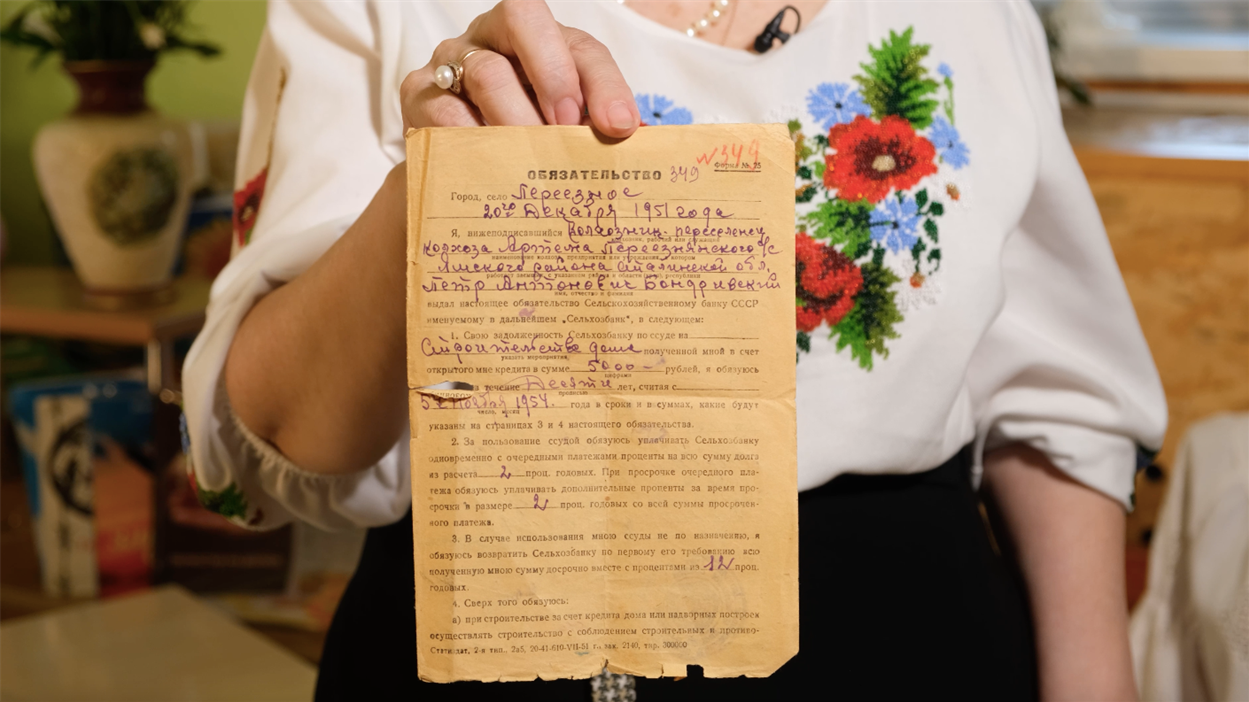 №349
Форма № 25
ОБЯЗАТЕЛЬСТВО 349
Город, село Переездное
20го Декабря 1951 года
Я, нижеподписавшийся Колхозник-переселенец
колхоза Артема Переезнянского с/с
наименование колхоза, предприятия или учреждения, в котором
Ямского района Сталинской обл,
Петр Антонович Бондривский
имя, отчество и фамилия
выдал настоящее обязательство Сельскохозяйственному банку СССР
именуемому в дальнейшем „Сельхозбанк", в следующем:
1. Свою задолженность Сельхозбанку по ссуде на
Строительство дома полученной мной в счет
указать мероприятия
открытого мне кредита в сумме 5000- рублей, я обязуюсь
цифрами
в течение Десяти лет, считая с
прописью
5го Ноября 1954. года в сроки и в суммах, какие будут
число, месяц
указаны на страницах 3 и 4 настоящего обязательства.
2. За пользование ссудой обязуюсь уплачивать Сельхозбанку
одновременно с очередными платежами проценты на всю сумму долга
из расчета 2 проц. годовых. При просрочке очередного пла-
тежа обязуюсь уплачивать дополнительные проценты за время про-
срочки в размере 2 проц. годовых со всей суммы просрочен-
ного платежа.
3. В случае использования мною ссуды не по назначению, я
обязуюсь возвратить Сельхозбанку по первому его требованию всю
полученную мною сумму досрочно вместе с процентами из 12 проц.
годовых.
4. Сверх того обязуюсь:
а) при строительстве за счет кредита дома или надворных построек
осуществлять строительство с соблюдением строительных и противо-
Статиздат, 2-я тип., 2а5, 20-41-610-VII-51 г., зак. 2140, тир. 300000